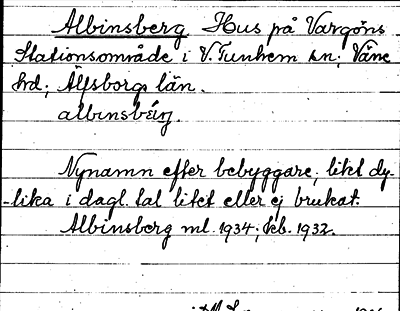 Albinsberg Hus på Vargöns
Stationsområde i V. Tunhem sn; Väne
hrd; Älfsborgs län.
albinsbærj.
Nynamn efter bebyggare; likt dy-
-lika i dagl. tal litet eller ej brukat.
Albinsberg ml. 1934; kb. 1932.